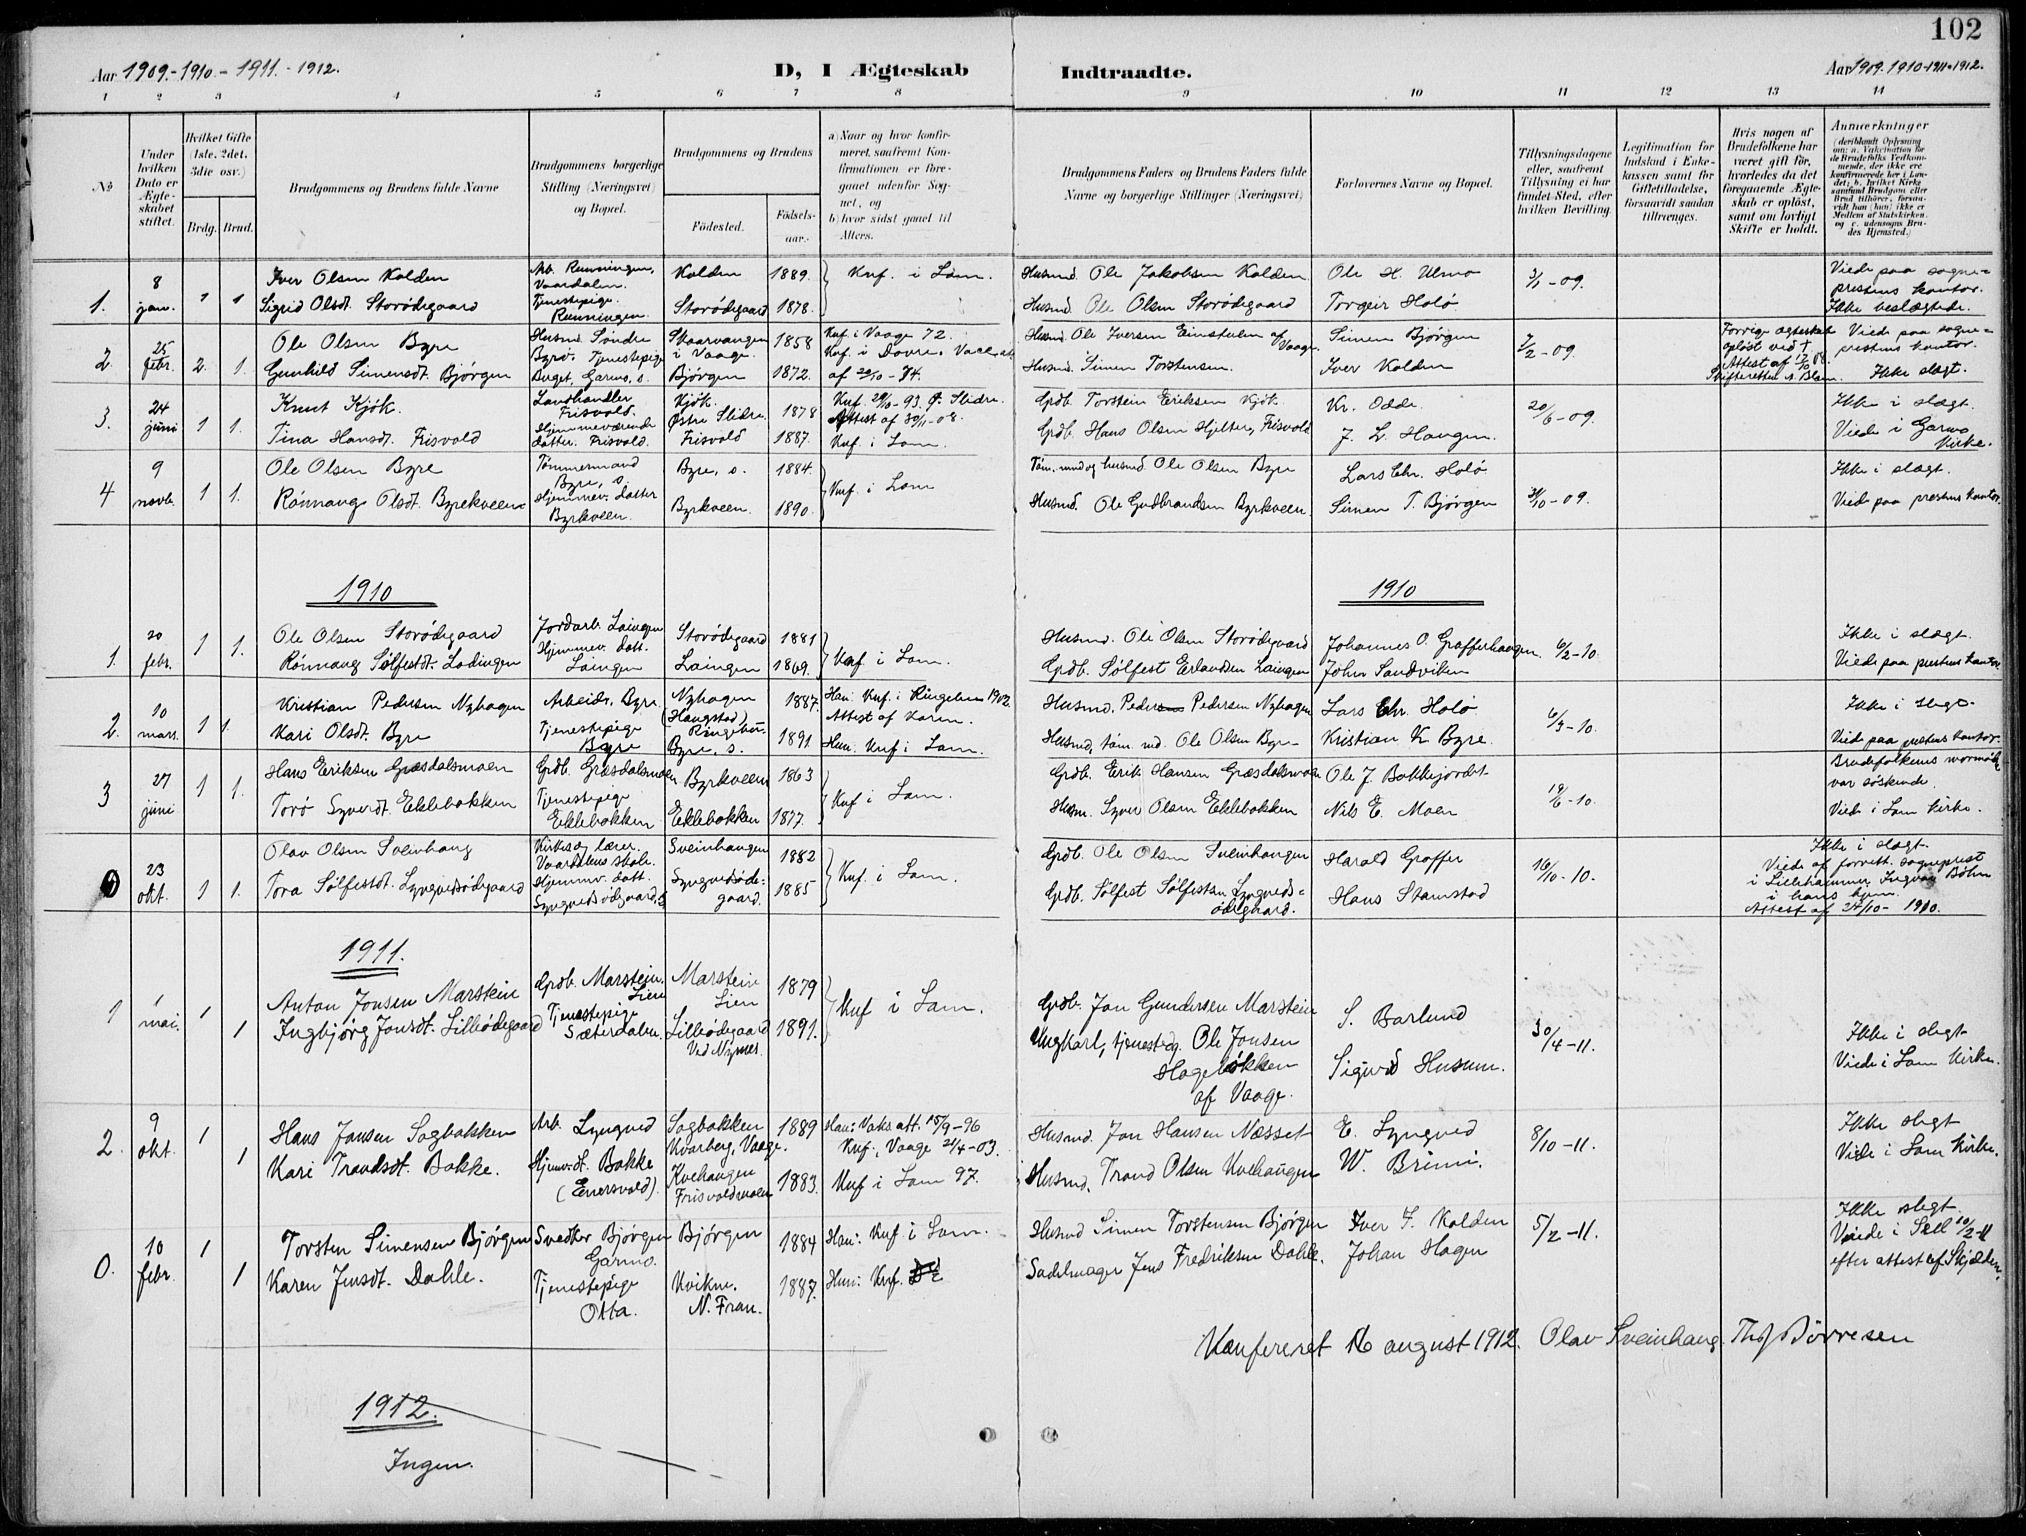 102
Aar 1909.-1910.-1911.-1912.
D, I Ægteskab
Indtraadte.
Aar 1909. 1910-1911-1912.
1 2 3 4 5 6 7 8 9 10 11 12 13 14
No
Under hvilken Dato er Ægteskabet stiftet.
Hvilket Gifte (1ste, 2det, 3die osv.)
Brdg. Brud.
Brudgommens og Brudens fulde Navne
Brudgommens borgerlige Stilling (Næringsvei) og Bopæl.
Brudgommens og Brudens
Födested.
Födselsaar.
a) Naar og hvor konfirmeret, saafremt Konfirmationen er foregaaet udenfor Sognet, og
b) hvor sidst gaaet til Alters.
Brudgommens Faders og Brudens Faders fulde Navne og borgerlige Stillinger (Næringsvei)
Forlovernes Navne og Bopæl.
Tillysningsdagene eller, saafremt Tillysning ei har fundet Sted, efter hvilken Bevilling.
Legitimation for Indskud i Enkekassen samt for Giftetilladelse, forsaavidt saadan tiltrænges.
Hvis nogen af Brudefolkene har været gift för, hvorledes da det foregaaende Ægteskab er oplöst, samt om lovligt Skifte er holdt.
Anmærkninger
(deriblandt Oplysning om: a. Vakcination for de Brudefolks Vedkommende, der ikke ere konfirmerede her i Landet; b. hvilket Kirkesamfund Brudgom eller Brud tilhörer, forsaavidt han (hun) ikke er Medlem af Statskirken og c. udensogns Brudes Hjemsted.)
1. 8 jan. 1 1
Iver Olsen Kolden
Sigrid Olsdt. Storødegaard
Arb. Runningen, Vaardalen.
Tjenestepige. Runningen.
Kolden 1889.
Storødegaard 1878.
Knf. i Lom.
Husmd. Ole Jakobsen Kolden
Husmd. Ole Olsen Storødegaard
Ole H. Ulmo
Torgeir Holø
3/1-09.
Viede paa sogneprestens kontor.
Ikke beslegtede.
2. 25 febr. 2. 1.
Ole Olsen Byre
Gunhild Simensdt. Bjørgen
Husmd. Søndre Byre. Tjenestepige
Garmo, s.
Skaarvangen i Vaage. 1858
Bjørgen 1872.
Knf. i Vaage 72.
Knf. i Dovre.
Husmd. Ole Iversen af Vaage.
Husmd. Simen Torstensen.
Simen Bjørgen
Iver Kolden
7/2-09.
Forrige egteskab opløst ved †
Attest af
Viede paa sogneprestens kontor.
Ikke slegt.
3. 24 juni 1 1.
Knut Kjøk.
Tina Hansdt. Frisvold
Landhandler Frisvold.
Hjemmeværende datter. Frisvold.
Kjøk. Østre Slidre 1878
Frisvold 1887.
Knf. 93. Ø. Slidre.
Attest af 30/11-08.
Knf. i Lom.
Grdb. Torstein Eriksen Kjøk.
Grdb. Hans Olsen Hjelter, Frisvold
Kr. Odde.
J. L. Haugen.
20/6-09.
Ikke i slegt.
Viede i Garmo Kirke.
4 9 novb. 1 1.
Ole Olsen Byre
Rønnaug Olsdt. Byrekveen
Tømmermand Byre, s.
Hjemmev. datter Byrkveen.
Byre, s. 1884
Byrkveen. 1890.
Knf. i Lom
Tøm. md og husmd. Ole Olsen Byre
Husmd. Ole Gudbrandsen Byrkveen
Lars Chr. Holø
Simen T. Bjørgen
31/10-09.
Ikke i slegt.
Viede paa prestens kontor.
1910
1910
1. 20 febr. 1 1.
Ole Olsen Storødegaard
Rønnaug Sølfestdt. Ladingen
Jordarb. Laingen
Hjemmev. datt. Laingen
Storødegaard 1881
Laingen 1869.
Knf i Lom.
Husmd. Ole Olsen Storødegaard
Grdb. Sølfest Erlandsen Laingen
Johannes O. Grafferhaugen
John Sandviken
6/2-10.
Ikke i slegt.
Viede paa prestens kontor.
2. 10 mars. 1 1.
Kristian Pedersen Nyhagen
Kari Olsdt. Byre
Arbeider. Byre
Tjenestepige Byre
Nyhagen (Haugstad) Ringebu 1887.
Byre, s. 1891
Han: Knf. i Ringebu 1902.
Attest af
Hun: Knf i Lom.
Husmd. Pedersen Pedersen Nyhagen
Husmd, tøm. md. Ole Olsen Byre
Lars Chr. Holø
Kristian K Byre.
6/3-10.
Ikke i slegt.
Viede paa prestens kontor.
3 27 juni 1 1.
Hans Eriksen Græsdalsmoen
Torø Syverdt. Eklebakken
Grdb. Græsdalsmoen
Tjenestepige Eklebakken
Byrkveen 1863
Eklebakken 1877.
Knf i Lom.
Grdb. Erik Hansen Græsdalsmoen
Husm. Syver Olsen Eklebakken
Ole J. Bakkejordet
Nils E. Moen
19/6-10.
Brudefolkenes mormødre var søskende.
Viede i Lom kirke.
0 23 okt. 1 1.
Olav Olsen Sveinhaug
Tora Sølfestdt. Lyngvedsødegaard
Kirkes. og lærer. Vaardalens skole.
Hjemmev. datt. Lyngvedsødgaard, s
Sveinhaugen 1882
Lyngvedsødegaard. 1885
Knf. i Lom.
Grdb. Ole Olsen Sveinhaugen
Grdb. Sølfest Sølfestsen Lyngvedsødegaard.
Harald Graffer
Hans Stamstad
16/10-10.
Ikke i slegt.
Viede af forrett. sogneprest i Lillehammer, Ingvar Bøhn i hans hjem.
Attest af 24/10-1910.
1911.
1 1 mai. 1 1
Anton Jonsen Marstein
Ingbjørg Jonsdt. Lilleødegaard
Grdb. Marstein, Lien
Tjenestepige Sæterdalen.
Marstein Lien 1879
Lilleødegaard Ved 1891.
Knf i Lom.
Grdb. Jon Gundersen Marstein
Ungkarl, tjenestedg. Ole Jonsen Hageløkken af Vaage.
S. Barlund
Sigurd Husum.
30/4-11.
Ikke i slegt
Viede i Lom Kirke.
2. 9 okt. 1 1
Hans Jonsen Sagbakken
Kari Trondsdt. Bakke.
Arb. Lyngved
Hjemv. dt. Bakke (Enersvold).
Sagbakken Kvarberg, Vaage. 1889
Kvehaugen Frisvoldmoen 1883.
Han: Vaks. att. 15/9-96
Knf. i Vaage 21/4-03.
Knf i Lom 97.
Husmd. Jon Hansen Næsset
Husmd. Trond Olsen Kvehaugen
E. Lyngved
W. Brimi.
8/10-11.
Ikke slegt
Viede i Lom Kirke.
0. 10 febr. 1 1
Torsten Simensen Bjørgen
Karen Jensdt. Dahle.
Snedker Bjørgen Garmo.
Tjenestepige Otta.
Bjørgen 1884
Kvikne. N. Fron. 1887.
Han: Knf i Lom.
Hun: Knf.
Husmd Simen Torstensen Bjørgen
Sadelmager Jens Fredriksen Dahle.
Iver T. Kolden
Johan Hagen
5/2-11.
Ikke slegt
Viede i Sell 10/2-11
efter attest af
Konfereret 16 august 1912. Olav Sveinhaug. Th Børresen
1912.
Ingen.